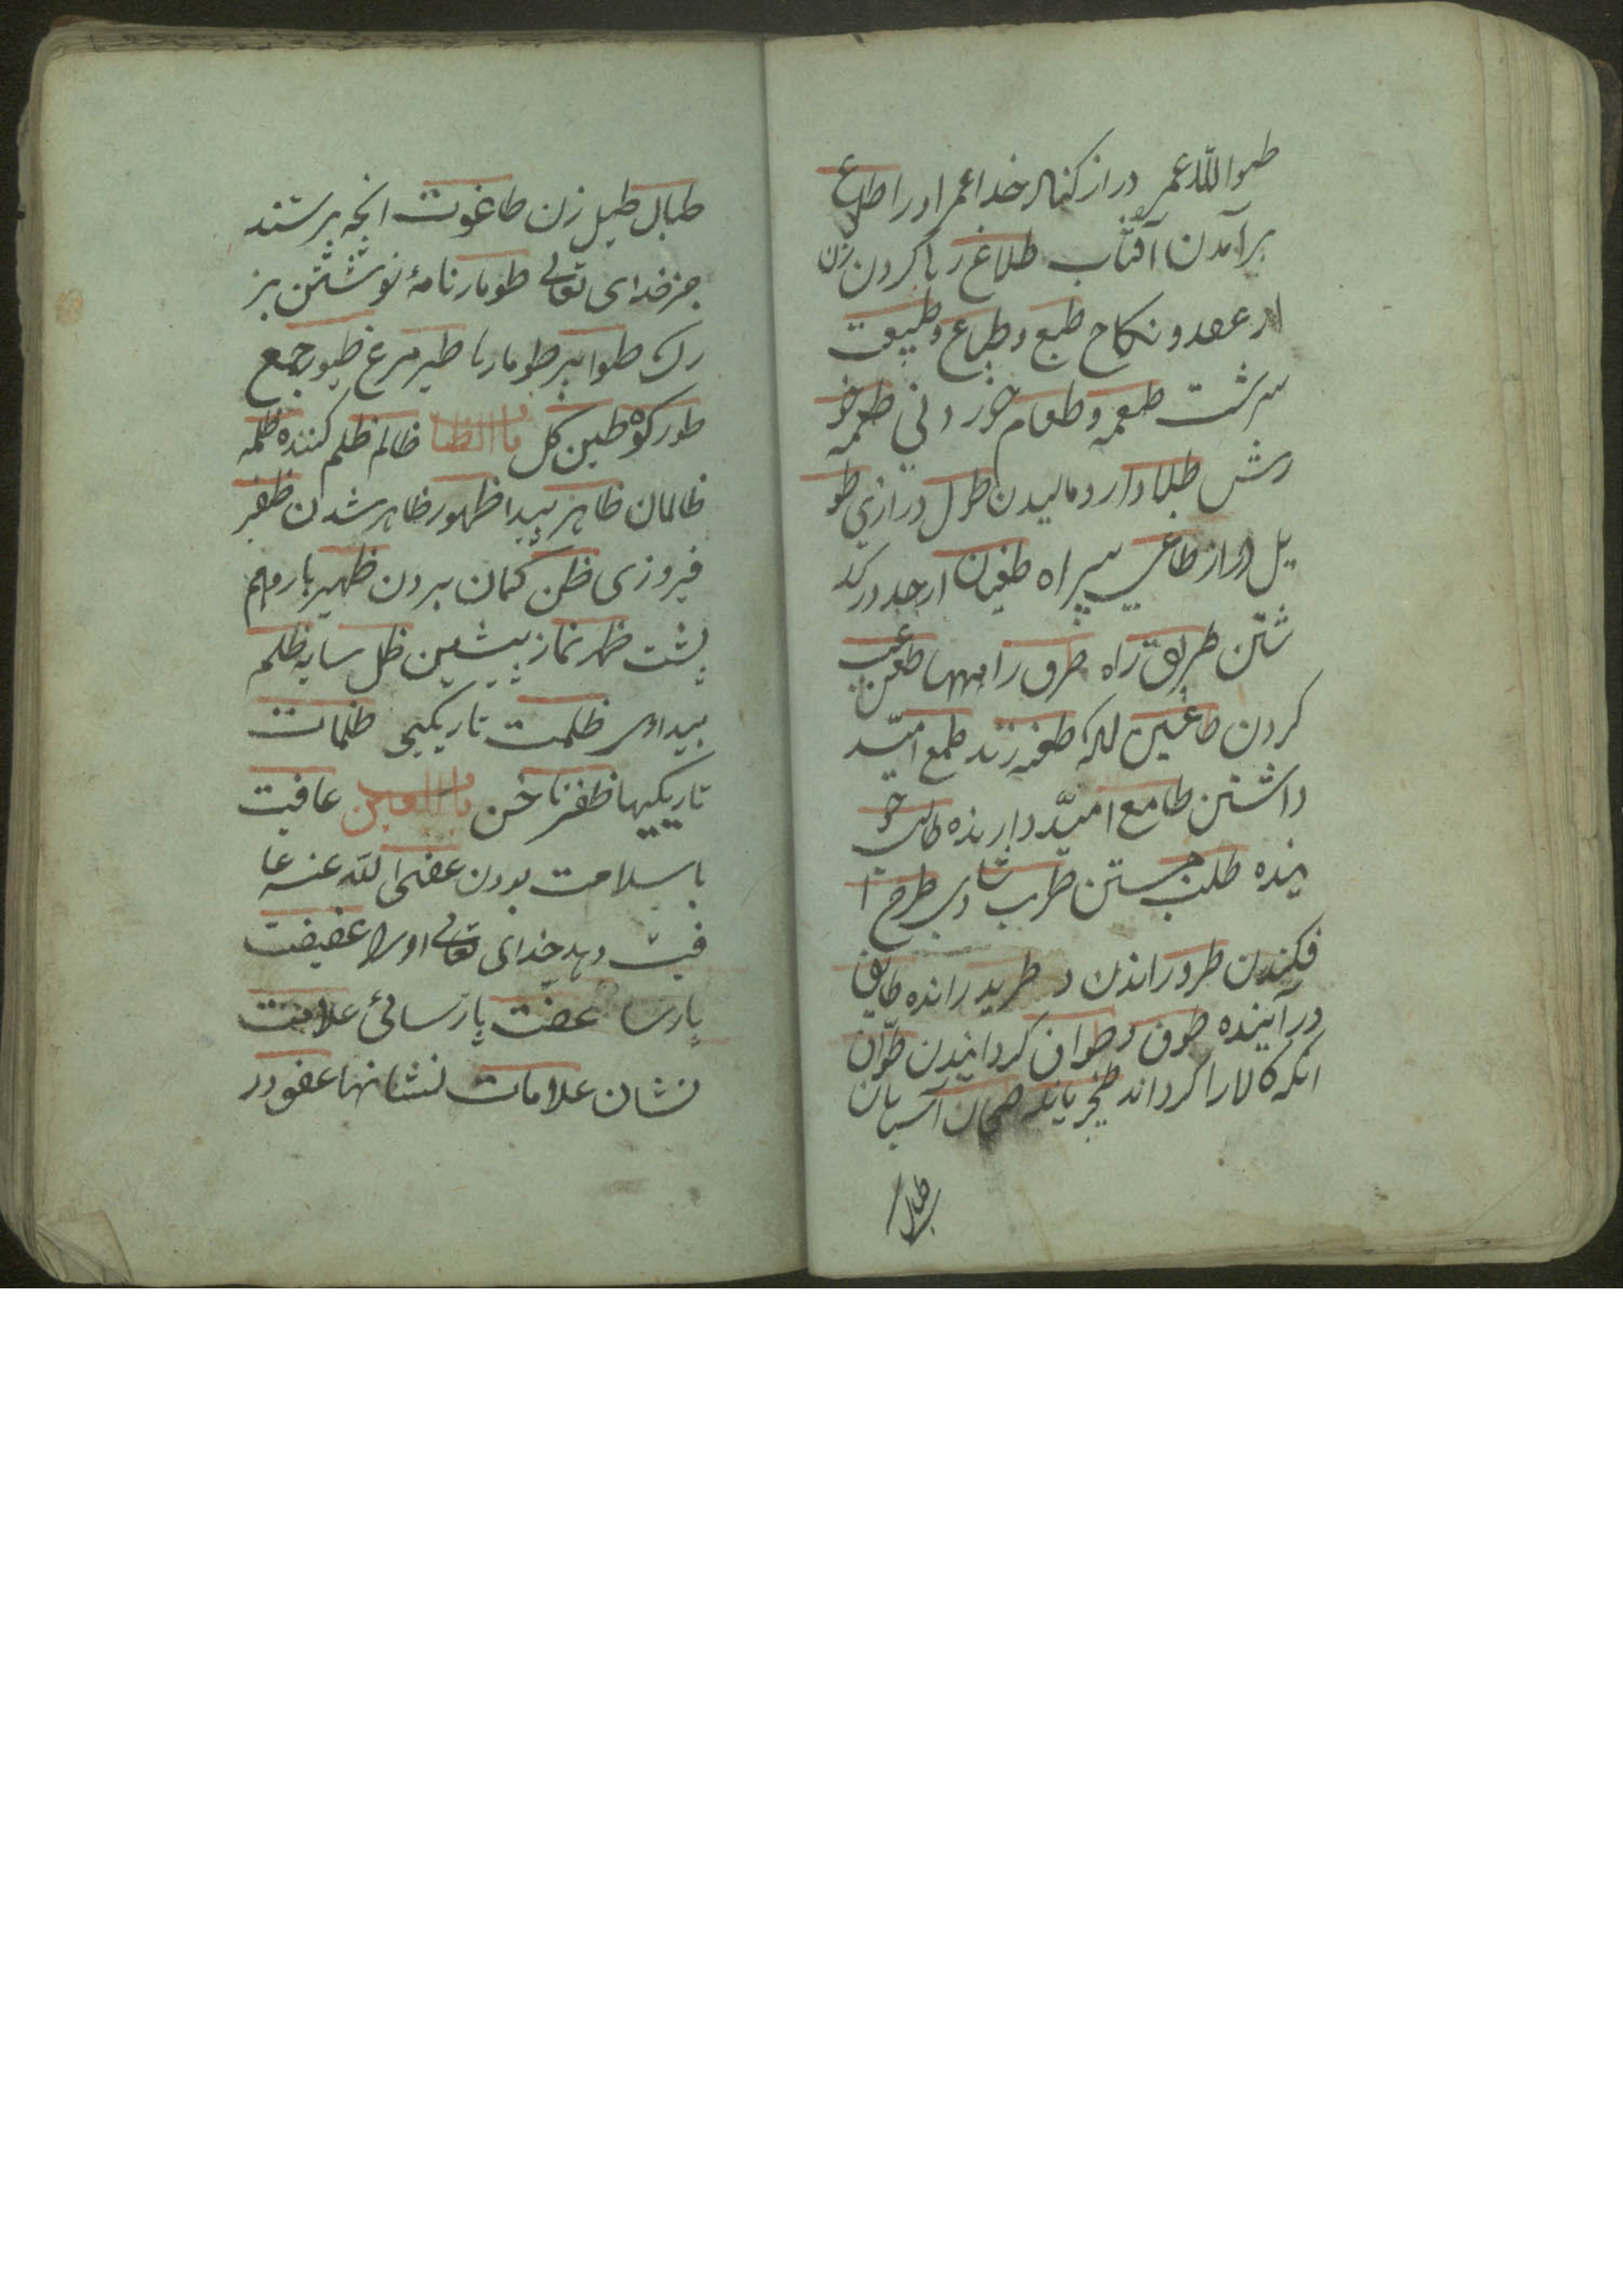 طوالله عمر دراز کناد خدا عمر او را طلوع
برآمدن آفتاب طلاغ رها کردن زن
از عقد و نکاح طبع و طباع و طبیعت
سرشت طعمه و طعام خوردنی طعمه خو
رش طلا دارو مالیدن طول درازی طو
یل دراز طاغی بیراه طغیان از حد در کد
شتن طریق راه طرق راهها طعن عیب
کردن طاعین انکه طعنه زند طمع امّید
داشتن طامع امیّد دارنده طالب خو
هنده طلب جستن طرب شادی طرح ا
فکندن طرد راندن و طرید رانده طایف
درآینده طوف و طواف کردانیدن طوّاف
انکه کالا را کرداند طحان آسیابان
طبال
طبال طبل زن طاغوت انچه پرستند
جز خدای تعالی طومار نامهٔ نوشتن بز
رک طوامیر طومارها طیر مرغ طیور جمع
طور کوه طین کل باب الظا ظالم ظلم کننده ظلمه
ظالمان ظاهر پیدا ظهور ظاهر شدن ظفر
فیروزی ظن کمان بردن ظهیر یار و هم
پشت ظهر نماز پیشین ظل سایه ظلم
بیدادی ظلمت تاریکی ظلمات
تاریکیها ظفر ناخن باب العین عافیت
با سلامت بودن عفی الله عنه عا
فیت دهد خدای تعالی او را عفیفت
پارسا عفت پارسائی علامت
نشان علامات نشانها عفو در